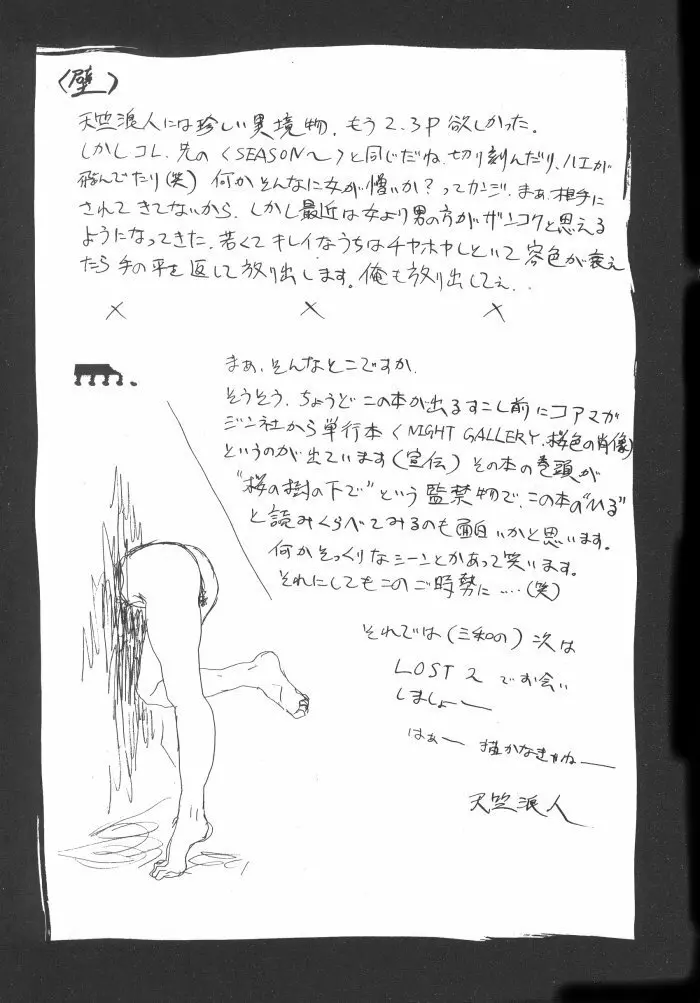 〈壁〉
天竺浪人には珍しい異境物。もう2、3P欲しかった。
しかしコレ、先の〈SEASON〜〉と同じだね。切り刻んだり、ハエが
飛んでたり(笑) 何かそんなに女が憎いか？ってカンジ。まあ、相手に
されてきてないから。しかし最近は女より男の方がザンコクと思える
ようになってきた。若くてキレイなうちはチヤホヤしといて容色が衰え
たら手の平を返して放り出します。俺も放り出してえ..
× × ×
まぁ、そんなとこですか
そうそう、ちょうどこの本が出るすこし前にコアマガ
ジン社から単行本〈NIGHT GALLERY、桜色の肖像〉
というのが出ています(宣伝)その本の巻頭が
"桜の樹の下で"という監禁物で、この本の"いる"
と読みくらべてみるのも面白いかと思います。
何かそっくりなシーンとかあって笑います。
それにしてもこのご時勢に‥‥(笑)
それでは(三和の)次は
LOST 2 でお会い
しましょー
はぁー 描かなきゃねー
天竺浪人